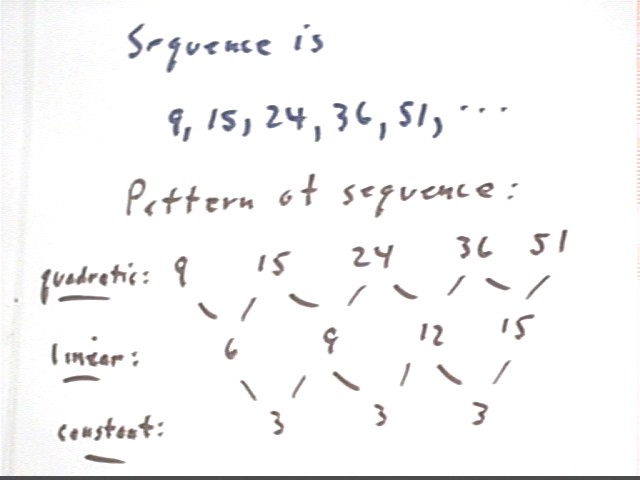 Sequence is
9, 15, 24, 36, 51, ...
Pattern of sequence:
quadratic: 9 15 24 36 51
linear: 6 9 12 15
constant: 3 3 3